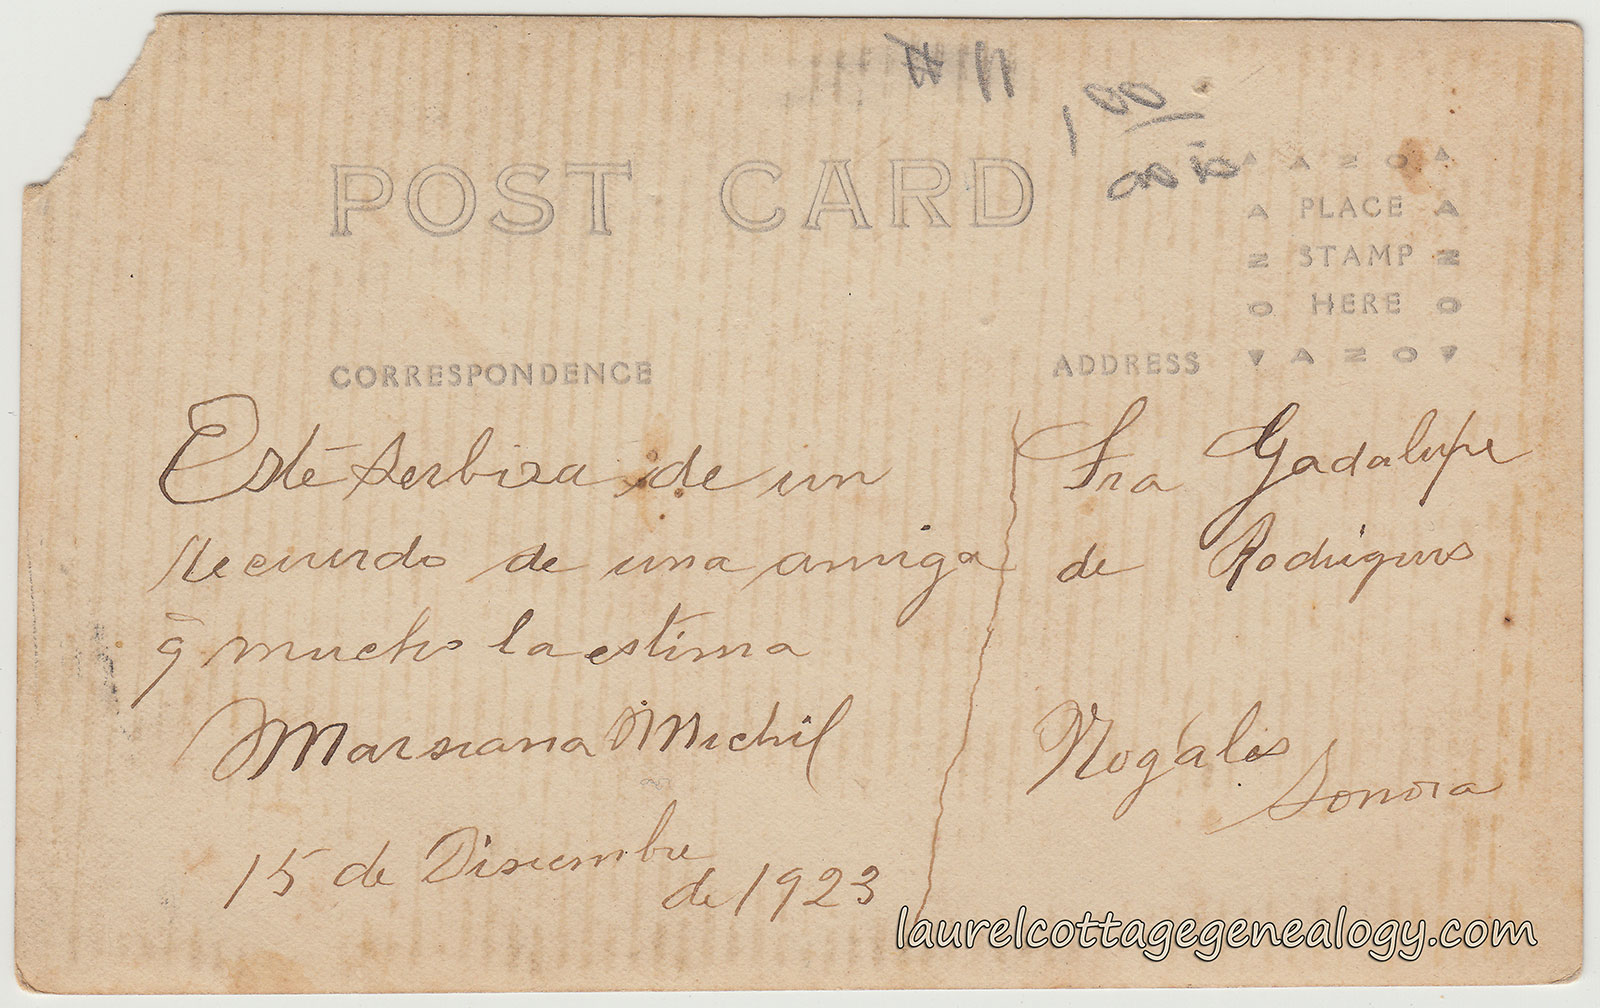 # 11
1.00
POST CARD
AZO
PLACE
STAMP
HERE
AZO
CORRESPONDENCE
ADDRESS
Esté serbira de un
recuerdo de una amiga
q̄ mucho la estima
Marsiana Michil
15 de Disiembre
de 1923
Sra Gadalupe
de Rodrigues
Nogáles
Sonora
laurelcottagegenealogy.com